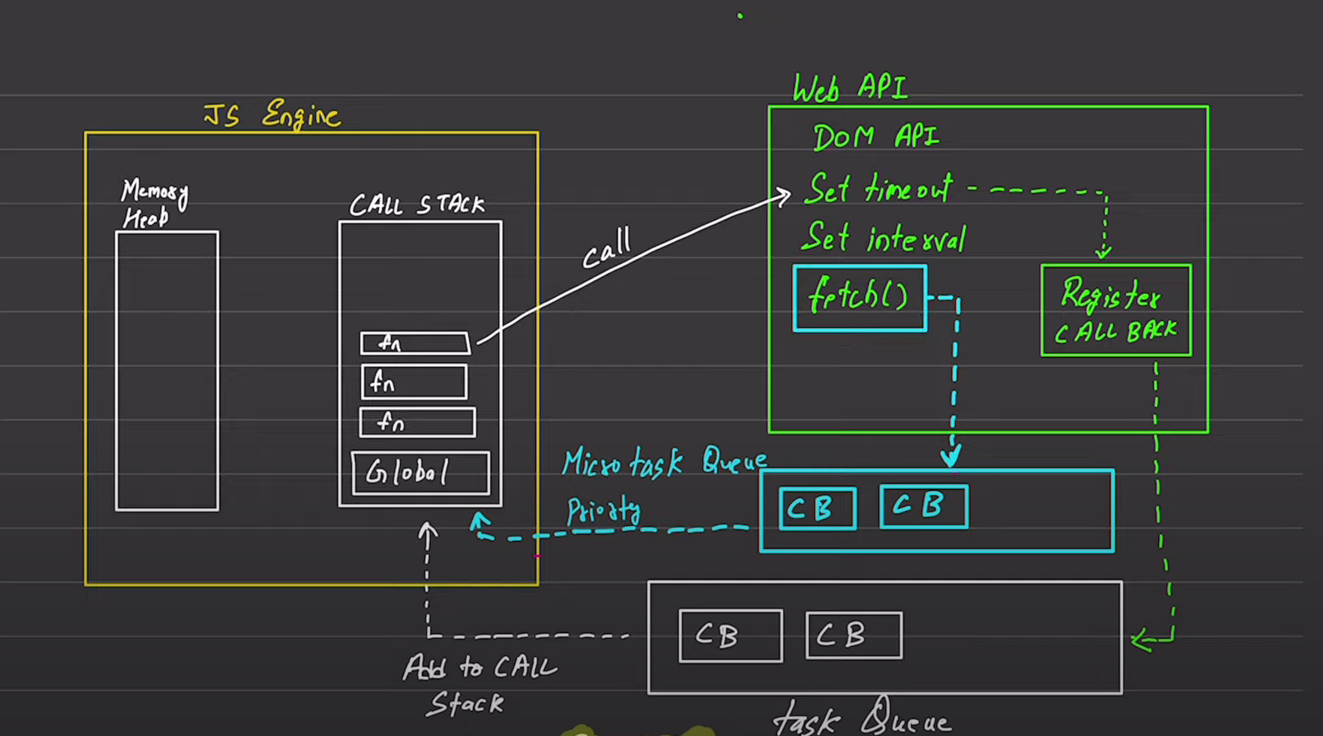 JS Engine
Memory
Heap
CALL STACK
fn
fn
fn
Global
call
Web API
DOM API
Set timeout
Set interval
fetch()
Register
CALL BACK
Micro task Queue
Priorty
CB
CB
CB
CB
Add to CALL
Stack
task Queue